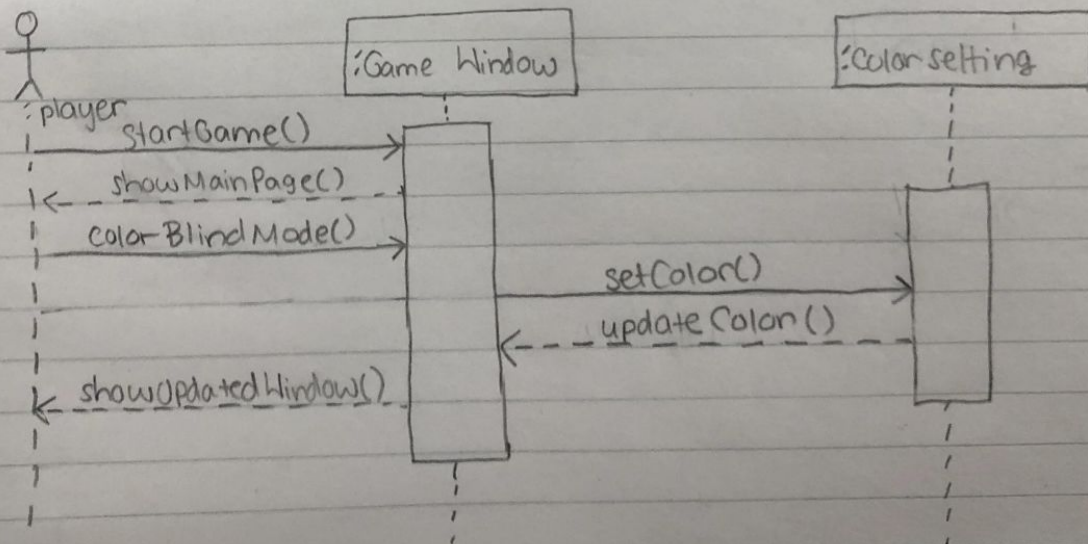 :Game Window
:Color setting
:player
startGame()
showMainPage()
colorBlindMode()
setColor()
updateColor()
showUpdatedWindow()